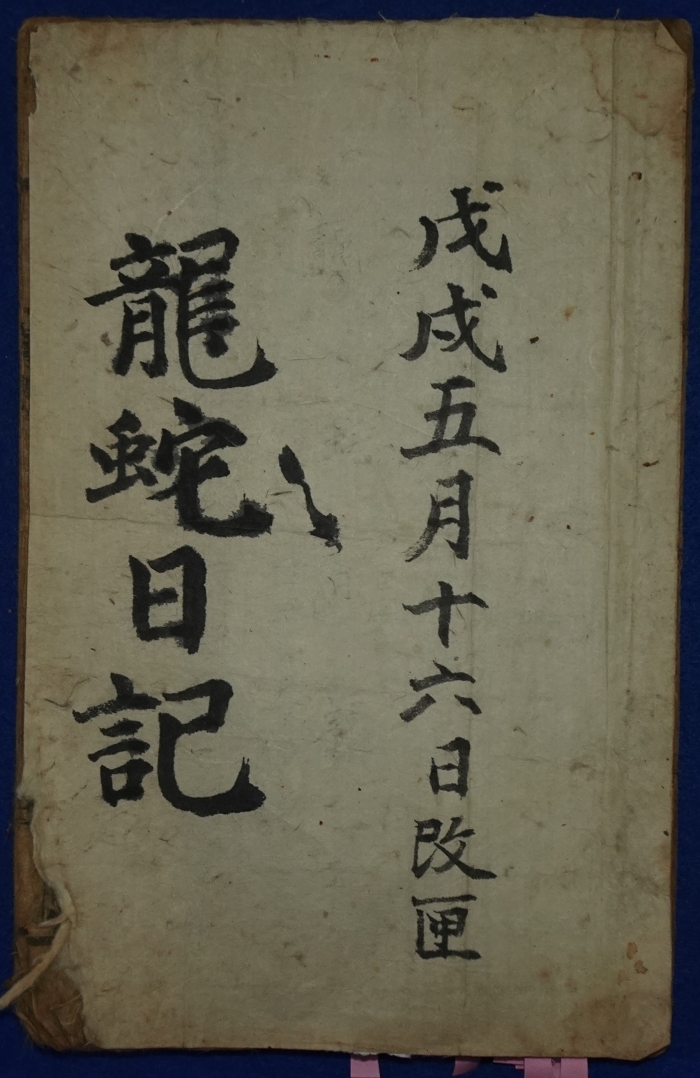 戊戌五月十六日改匣
龍蛇日記